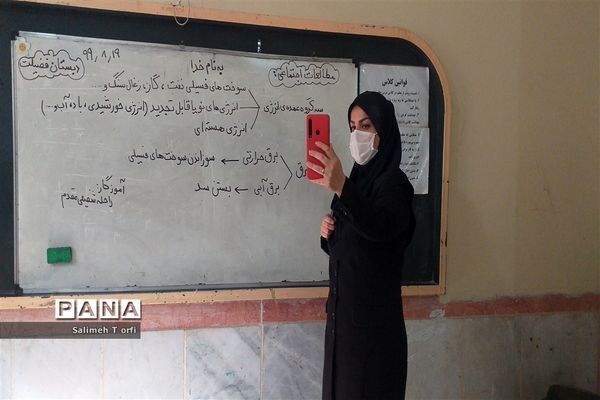 ۹۹,۸,۱۹
دبستان فضیلت
به نام خدا
مطالعات اجتماعی:
سوخت های فسیلی نفت ، گاز ، زغال سنگ و...
سه گروه عمده ی انرژی
انرژی های نو یا قابل تجدید (انرژی خورشیدی ، باد، آب و...)
انرژی هسته ای
برق
برق حرارتی ← سوزاندن سوخت های فسیلی
برق آبی ← بستن سد
آموزگار:
راحله شفیعی مقدم
قوانین کلاس
PANA
Salimeh T orfi